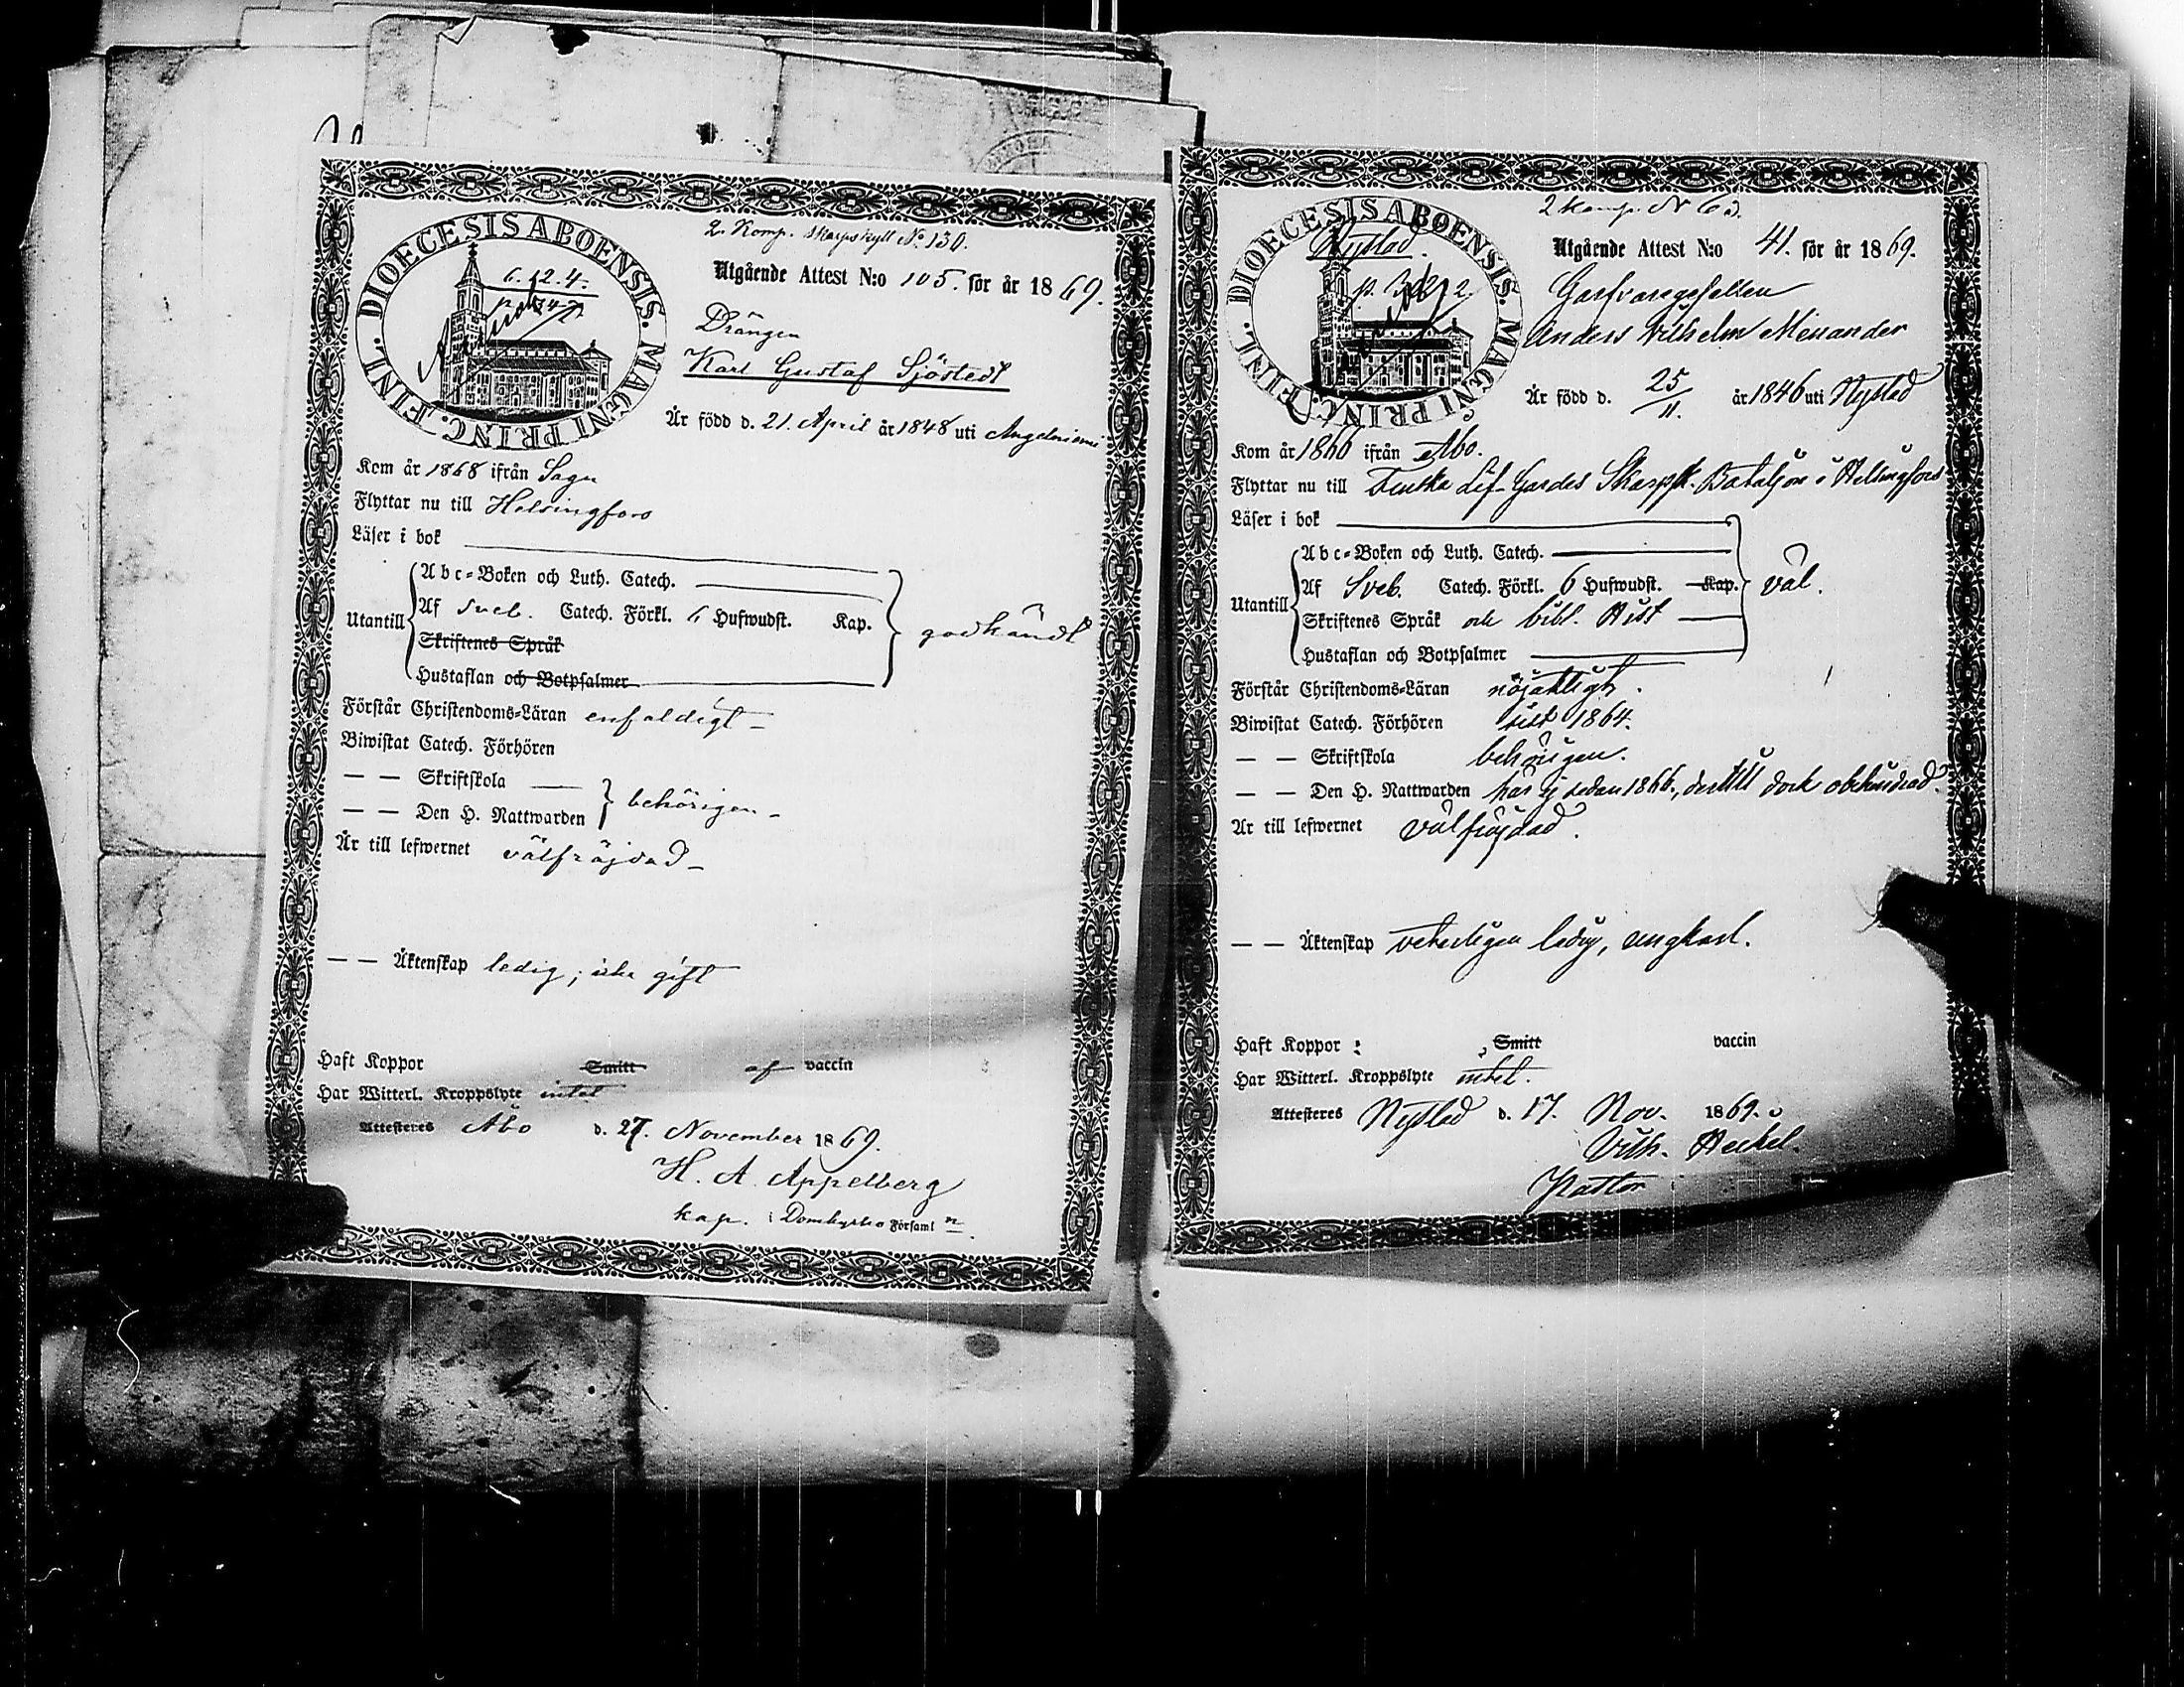 2. Komp. skarpskytt No. 130.
DIOECESIS ABOENSIS. MAGNI PRINC. FINL.
6.12.4.
Utgående Attest N:o 105. för år 1869.
Drängen
Karl Gustaf Sjöstedt
Är född d. 21. April år 1848 uti Angelniemi
Kom år 1868 ifrån Sagu
Flyttar nu till Helsingfors
Läser i bok
Utantill
Abc-Boken och Luth. Catech.
Af Sveb. Catech. Förkl. 6 Hufwudst. Kap.
Skriftenes Språk
Hustaflan och Botpsalmer
godkändt
Förstår Christendoms-Läran enfaldigt
Biwistat Catech. Förhören
— — Skriftskola
— — Den H. Nattwarden
behörigen
Är till lefwernet välfräjdad
— — Äktenskap ledig; icke gift
Haft Koppor Smitt af vaccin
Har Witterl. Kroppslyte intet
Attesteres Åbo d. 27. November 1869.
H. A. Appelberg
kap. i Domkyrko Församl n.
2 komp. N
DIOECESIS ABOENSIS. MAGNI PRINC. FINL.
Nystad.
Utgående Attest N:o 41. för år 1869.
Garfvaregesellen
Anders Vilhelm Menander
Är född d. 25/11. år 1846 uti Nystad
Kom år 1866 ifrån Åbo.
Flyttar nu till Finska Lif-Gardes Skarpsk. Bataljon i Helsingfors
Läser i bok
Utantill
Abc-Boken och Luth. Catech.
Af Sveb. Catech. Förkl. 6 Hufwudst. Kap.
Skriftenes Språk och bibl. Hist
Hustaflan och Botpsalmer
väl.
Förstår Christendoms-Läran nöjaktigt.
Biwistat Catech. Förhören sist 1864.
— — Skriftskola behörigen.
— — Den H. Nattwarden här ej sedan 1866, dertill dock obehindrad.
Är till lefwernet välfrejdad.
— — Äktenskap veterligen ledig, ungkarl.
Haft Koppor ; , Smitt vaccin
Har Witterl. Kroppslyte intet.
Attesteres Nystad d. 17. Nov. 1869.
Vilh. Heckel.
Pastor